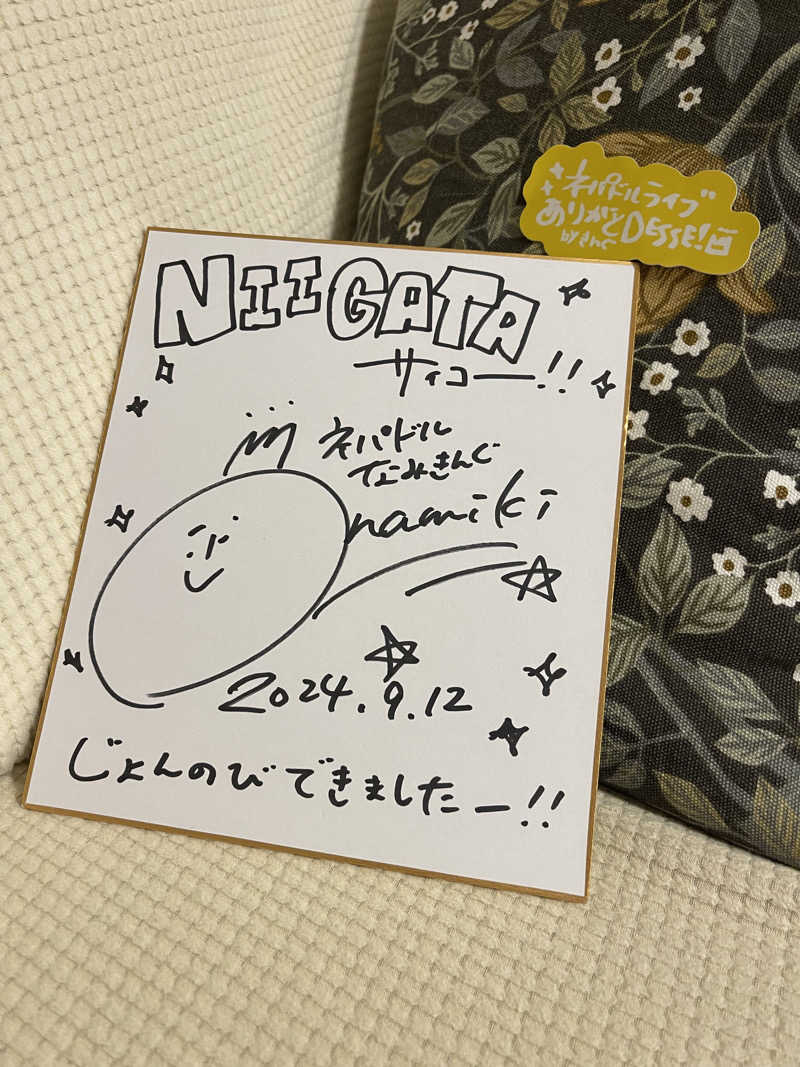 ネパドルライブ
ありがとDESSE!
by きんぐ
NIIGATA
サイコー!!
ネパドル
なみきんぐ
namiki
2024.9.12
じょんのびできましたー!!